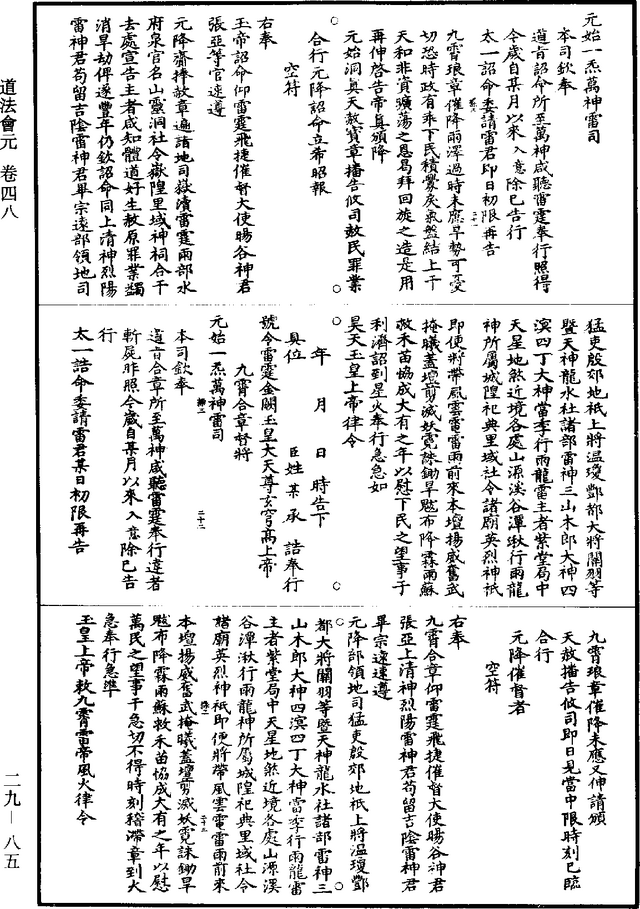 元始一炁萬神雷司
本司欽奉
道旨詔命所至萬神咸聽雷霆奉行照得
今歲自某月以來入意除已告行
太一詔命委請雷君即日初限再告
九霄琅章催降雨澤過時未應旱勢可憂
切恐時政有乖下民積釁戾氣盤結上干
天和非資曠蕩之恩曷拜回旋之造是用
再伸啓告帝真頒降
元始洞真天赦寶章播告攸司赦民罪業
合行元降詔命立希昭報
空符
右奉
玉帝詔命仰雷霆飛捷催督大使暘谷神君
張亞等官速遵
元降齋捧赦章遍諸地司嶽瀆雷霆雨部水
府泉官名山靈洞社令嶽隍里域神祠合干
去處宣告主者咸知體道好生赦原罪業蠲
消旱劫俾遂豐年仍欽詔命同上清神烈陽
雷神君苟留吉陰雷神君畢宗遠部領地司
猛吏殷郊地祇上將溫瓊酆都大將關羽等
暨天神龍水社諸部雷神三山木郎大神四
溟四丁大神當季行雨龍雷主者紫堂局中
天星地煞近境各處山源溪谷潭湫行雨龍
神所屬城隍祀典里域社令諸廟英烈神祇
即便將帶風雲電雷雨前來本壇揚威奮武
掩曦蓋壇剪滅妖霓誅鋤旱魃布降霖雨蘇
救禾苗協成大有之年以慰下民之望事于
利濟詔到星火奉行急急如
昊天玉皇上帝律令
年 月 日 時告下
具位 臣姓 某 承 誥奉行
號令雷霆金闕玉皇大天尊玄穹高上帝
九霄合章督將
元始一炁萬神雷司
本司欽奉
道旨合章所至萬神咸聽雷霆奉行違者
斬屍昨照今歲自某月以來入意除已告
行
太一誥命委請雷君某日初限再告
九霄琅章催降未應又伸請頒
天赦播告攸司即日見當中限時刻已臨
合行
元降催督者
空符
右奉
九霄合章仰雷霆飛捷催督大使暘谷神君
張亞上清神烈陽雷神君苟留吉陰雷神君
畢宗遠速遵
元降部領地司猛吏殷郊地祇上將溫瓊酆
都大將關羽等暨天神龍水社諸部雷神三
山木郎大神四溟四丁大神當季行雨龍雷
主者紫堂局中天星地煞近境各處山源溪
谷潭湫行雨龍神所屬城隍祀典里域社令
諸廟英烈神祇即便將帶風雲電雷雨前來
本壇揚威奮武掩曦蓋壇剪滅妖霓誅鋤旱
魃布降霖雨蘇救禾苗協成大有之年以慰
萬民之望事干急切不得時刻稽滯章到火
急奉行急準
玉皇上帝敕九霄雷帝風火律令
道法會元 卷四八
二九—八五